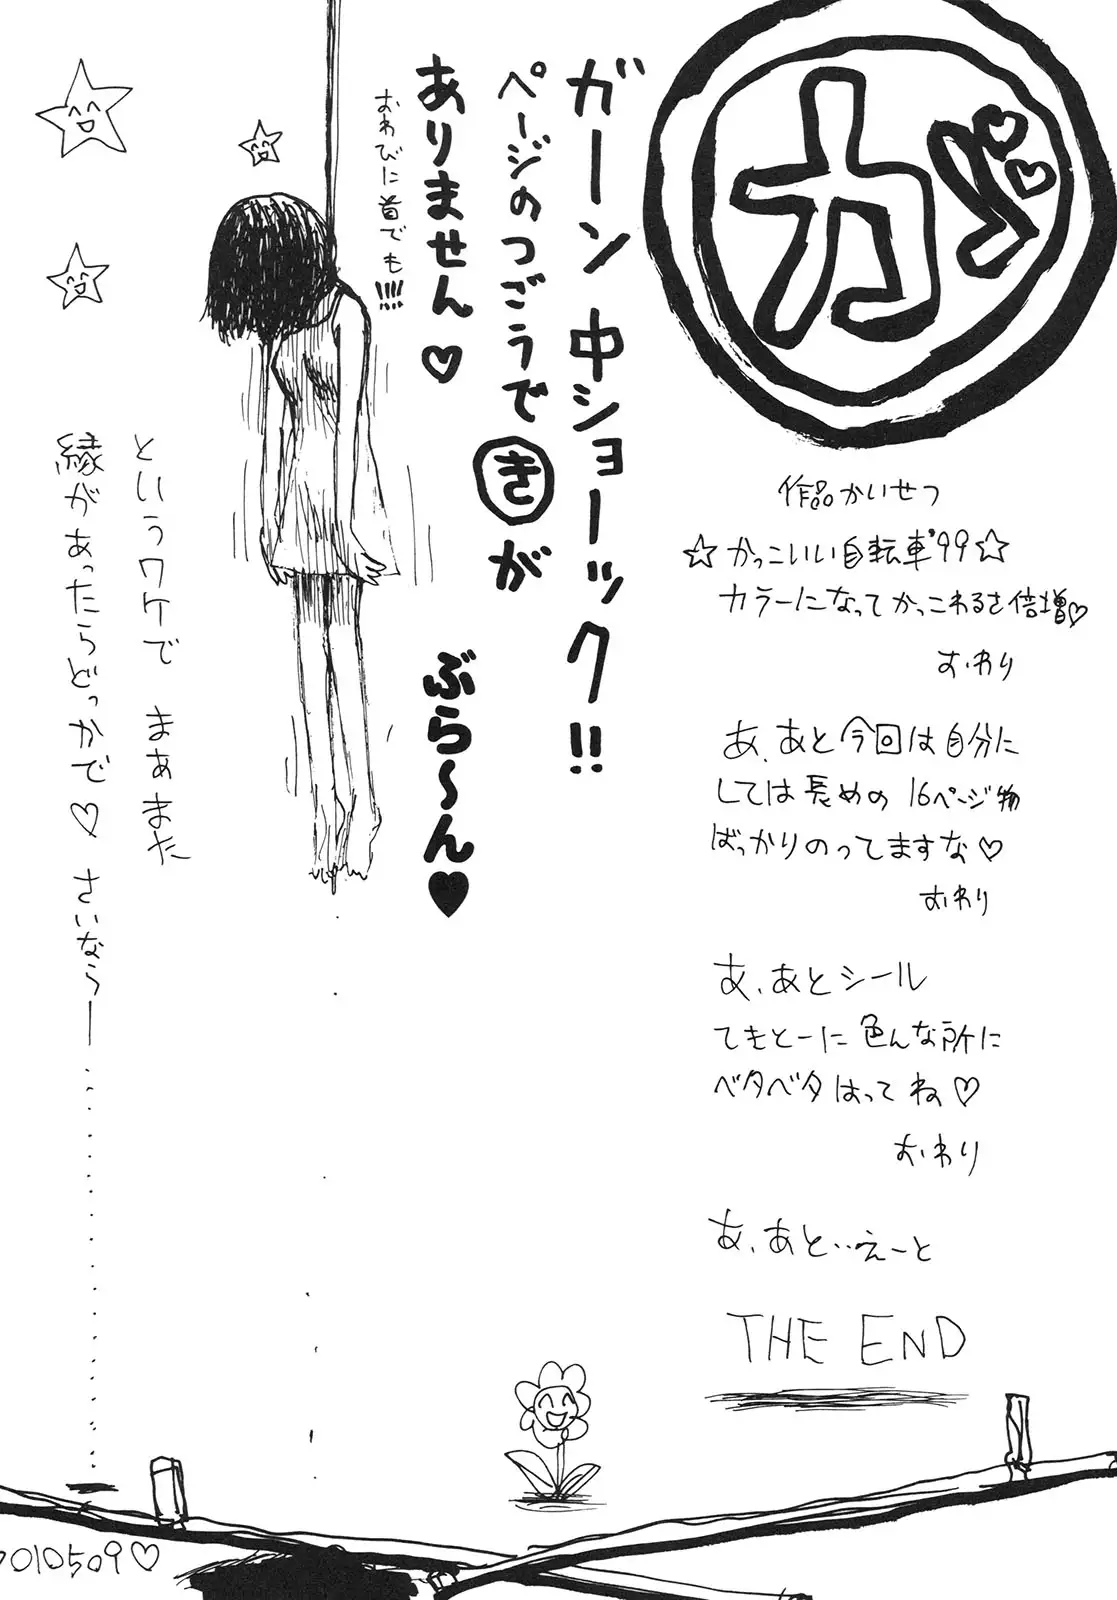 ガ
作品かいせつ
☆かっこいい自転車'99☆
カラーになってかっこわるさ倍増♡
おわり
あ、あと今回は自分に
しては長めの16ページ物
ばっかりのってますな♡
おわり
あ、あとシール
てきとーに色んな所に
ベタベタはってね♡
おわり
あ、あと‥えーと
THE END
ガーン中ショーック!!
ページのつごうでⓀきが
ありません♡
おわびに首でも!!!!
ぶら〜ん♥
というワケで まあまた
縁があったらどっかで♡ さいならー
010509♡